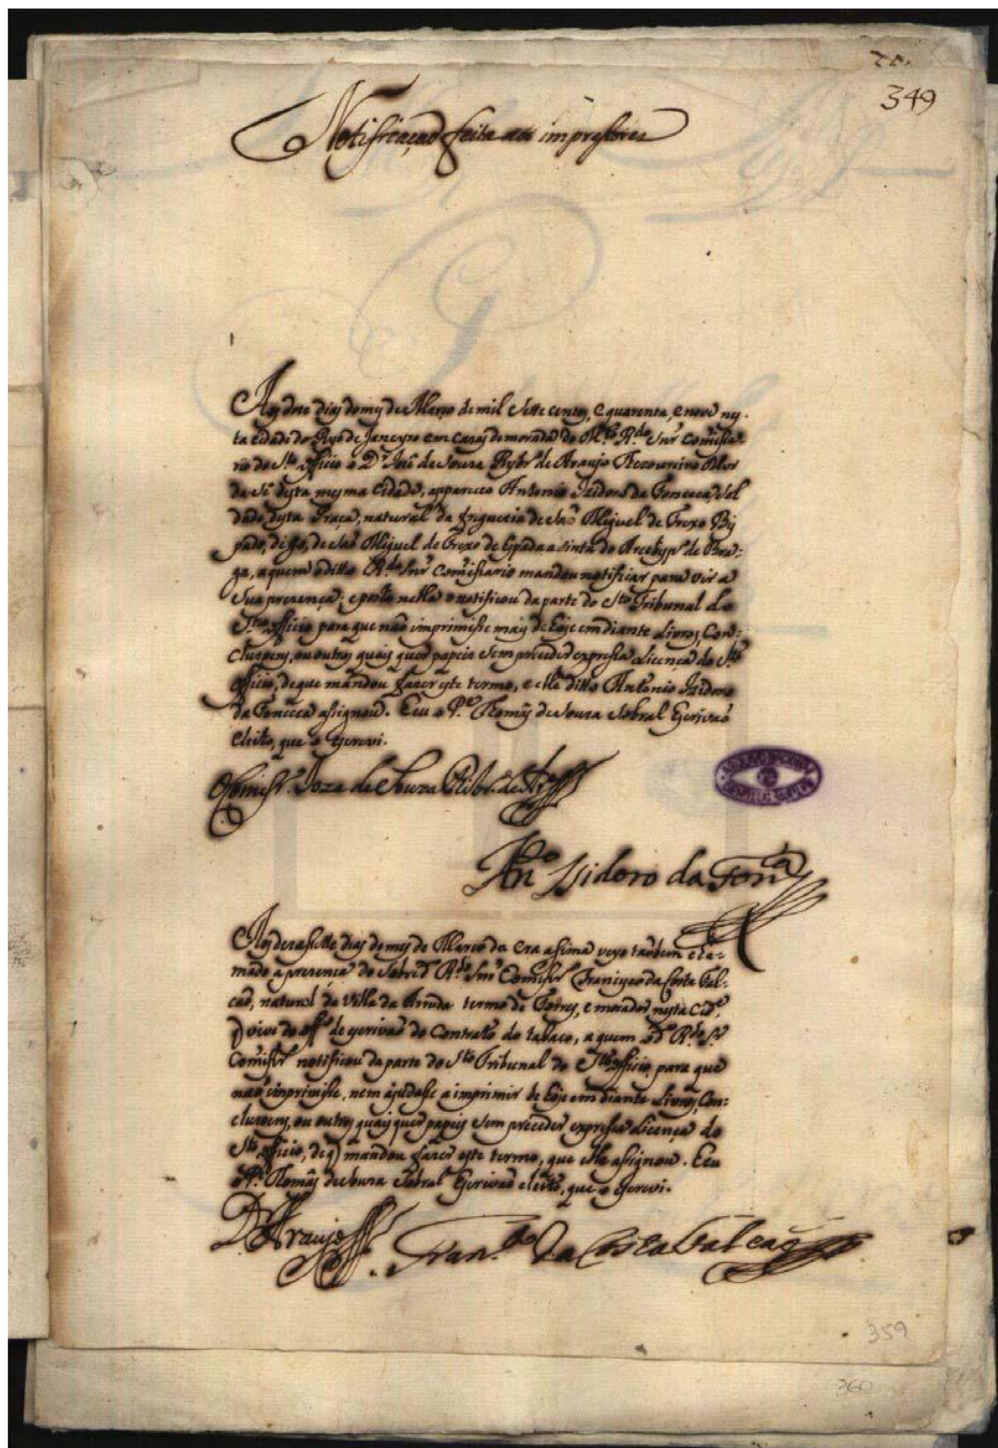 349
Notificação feita aos impressores
Aos doze dias do mes de Março de mil sette centos, e quarenta, e nove nes-
ta cidade do Ryo de Janeyro em cazas de morada do M.to R.do Snr Comissa-
rio do S.to officio o D.r Joze de Souza Rybr.o de Araujo
da Sé desta mesma Cidade, appareceo Antonio Izidoro da Fonceca Sol
dado desta Praça, natural da freguezia de São Miguel de Freixo Bis
pado, digo, de São Miguel de Freixo de Espada a Sinta do Arcebysp.do de Bra-
ga, a quem o ditto R.do Snr Comissario mandou notificar para vir a
sua prezença; e posto nella o notificou da parte do S.to Tribunal do
S.to officio para que não imprimisse mais de hoje em diante Livros, Con-
cluzoens, ou outros quais quer papeis sem preceder expressa Licença do S.to
officio, de que mandou fazer este termo, e elle ditto Antonio Izidoro
da Fonceca assignou. E eu o P.e Romão de Souza Sobral Escrivão
eleito, que o escrevi.
O Comiss.r Joze de Souza Ribr.o de Ar.o
An.o Isidoro da Fon.ca
Aos dezasette dias do mes de Março da era assima veyo tambem cha-
mado a prezença do Sobred.o R.do Snr Comiss.r Francisco da Costa Fal-
cão, natural da Villa da Arruda termo de Torres, e morador nesta Cid.e,
q vive do off.o de escrivão do Contratto do tabaco, a quem o d.o R.do S.r
Comiss.r notificou da parte do S.to Tribunal do S.to officio, para que
não imprimisse, nem ajudasse a imprimir de hoje em diante Livros, Con-
cluzoens, ou outros quais quer papeis sem preceder expressa Licença do
S.to officio, de q mandou fazer este termo, que elle assignou. E eu
o P.e Romão de Souza Sobral Escrivão eleito, que o escrevi.
D.r Araujo
Fran.co da Costa Falcaõ
359
360